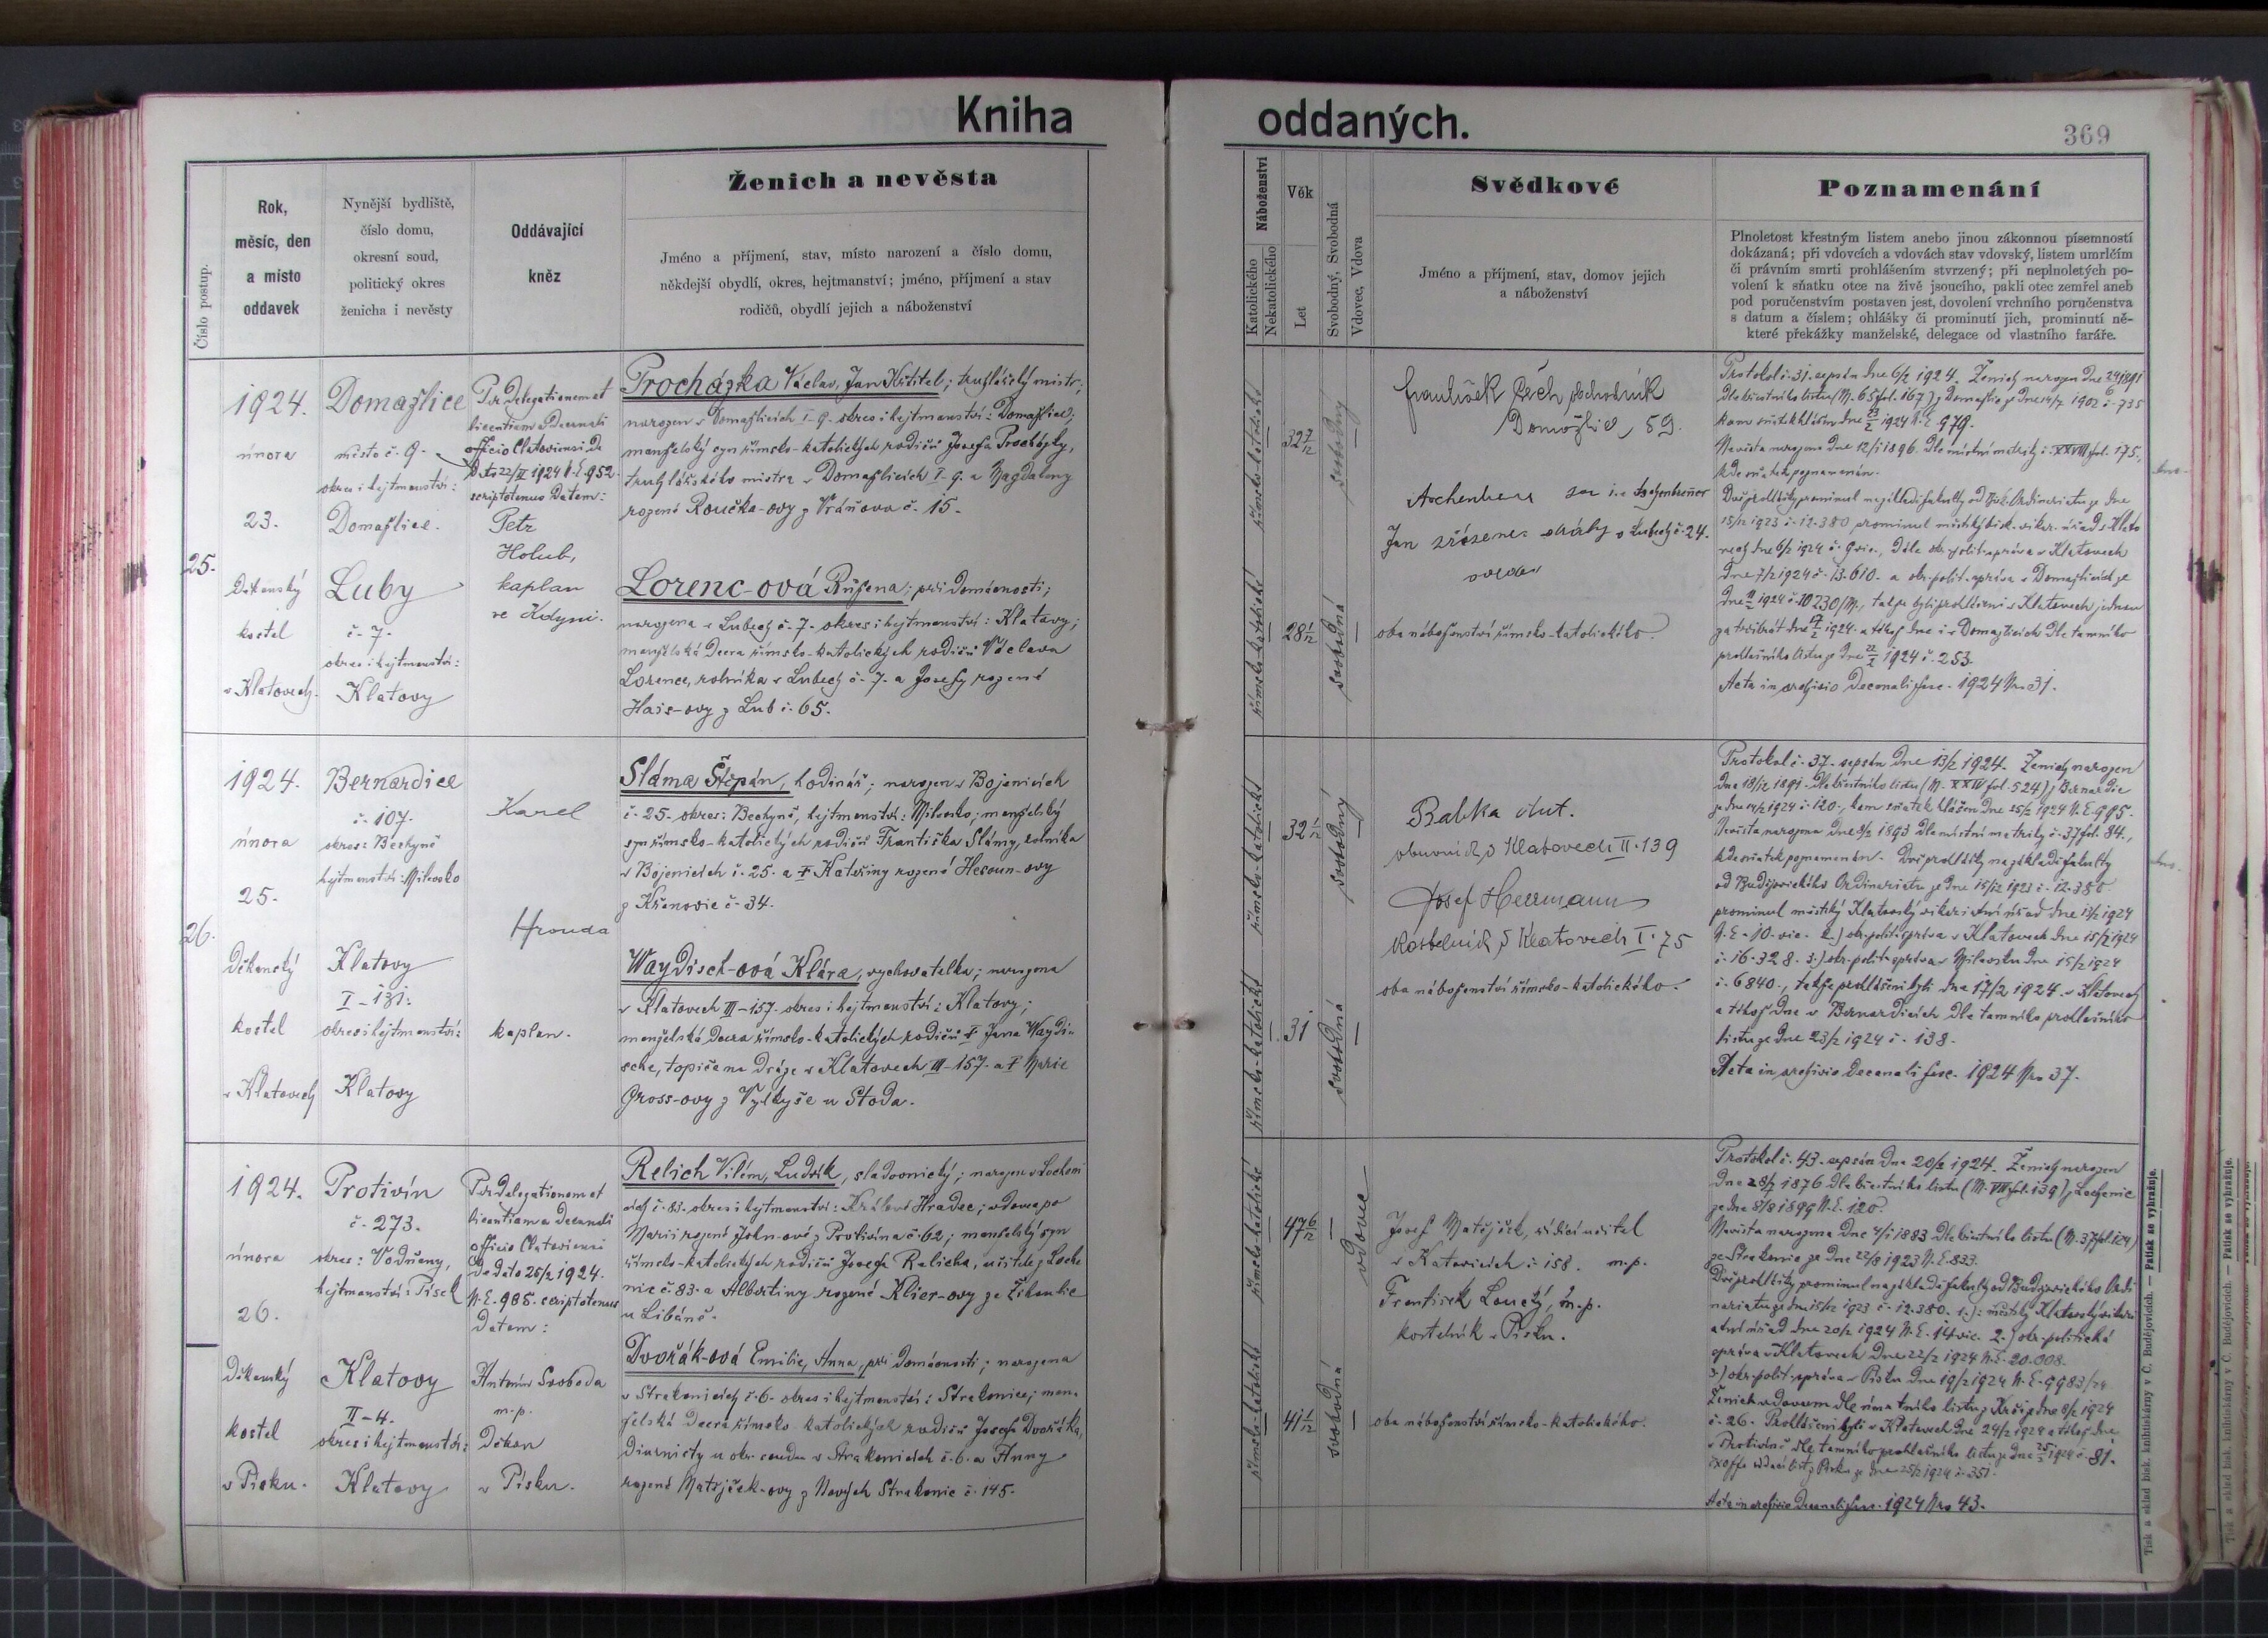 Kniha
oddaných.
369
Číslo postup.
Rok,
měsíc, den
a místo
oddavek
Nynější bydliště,
číslo domu,
okresní soud,
politický okres
ženicha i nevěsty
Oddávající
kněz
Ženich a nevěsta
Jméno a příjmení, stav, místo narození a číslo domu,
někdejší obydlí, okres, hejtmanství; jméno, příjmení a stav
rodičů, obydlí jejich a náboženství
Náboženství
Katolického
Nekatolického
Věk
Let
Svobodný, Svobodná
Vdovec, Vdova
Svědkové
Jméno a příjmení, stav, domov jejich
a náboženství
Poznamenání
Plnoletost křestným listem anebo jinou zákonnou písemností
dokázaná; při vdovcích a vdovách stav vdovský, listem umrlčím
či právním smrti prohlášením stvrzený; při neplnoletých po-
volení k sňatku otce na živě jsoucího, pakli otec zemřel aneb
pod poručenstvím postaven jest, dovolení vrchního poručenstva
s datum a číslem; ohlášky či prominutí jich, prominutí ně-
které překážky manželské, delegace od vlastního faráře.
25.
1924.
února
23.
Děkanský
kostel
v Klatovech.
Domažlice
město č. 9.
okres i hejtmanství:
Domažlice.
Luby
č. 7.
okres i hejtmanství:
Klatovy
Per delegationem et
licentiam a Decanali
officio Clatoviensi de
Dato 22/II 1924 N.E. 952.
scriptotenus datam:
Petr
Holub,
kaplan
ve Kdyni.
Procházka Václav, Jan Křtitel; truhlářský mistr;
narozen v Domažlicích I-9. okres i hejtmanství: Domažlice;
manželský syn římsko-katolických rodičů Josefa Procházky,
truhlářského mistra v Domažlicích I-9. a Magdaleny
rozené Roučka-ovy z Vráňova č. 15.
Lorenc-ová Růžena; při domácnosti;
narozena v Lubech č. 7. okres i hejtmanství: Klatovy;
manželská dcera římsko-katolických rodičů Václava
Lorence, rolníka v Lubech č. 7. a Josefy rozené
Hais-ovy z Lub č. 65.
římsko-katolické
32 2/12
svobodný
římsko-katolické
28 1/12
svobodná
František Čech, obchodník
Domažlice, 59.
Jan zřízenec dráhy v Lubech č. 24.
svědek
oba náboženství římsko-katolického.
Protokol č. 31. sepsán dne 6/2 1924. Ženich narozen dne
kam sňatek hlášen dne 23/2 1924 N.E. 979.
Nevěsta narozena dne 12/1 1896. Dle místní matriky č. XXVIII fol. 175,
kde sňatek poznamenán.
15/12 1923 č. 12.380 prominul městský bisk. vikar. úřad v Klato
vech dne 6/2 1924 č. 9 vic., dále okr. polit. správa v Klatovech
dne 7/2 1924 č. 13.610. a okr. polit. správa v Domažlicích ze
prohlašního listu ze dne 22/2 1924 č. 253.
Acta in archivio decanali fasc. 1924 Nro 31.
26.
1924.
února
25.
Děkanský
kostel
v Klatovech
Bernardice
č. 107.
okres: Bechyně
hejtmanství: Milevsko
Klatovy
I-131.
okres i hejtmanství:
Klatovy
Karel
Hrouda
kaplan.
Sláma Štěpán, hodinář; narozen v Bojenicích
č. 25. okres: Bechyně, hejtmanství: Milevsko; manželský
syn římsko-katolických rodičů Františka Slámy, rolníka
v Bojenicích č. 25. a † Kateřiny rozené Hesoun-ovy
z Křenovic č. 34.
Waydisch-ová Klára, vychovatelka; narozena
v Klatovech III-157. okres i hejtmanství: Klatovy;
manželská dcera římsko-katolických rodičů † Jana Waydi-
sche, topiče na dráze v Klatovech III-157. a † Marie
Gross-ovy z Vytkyše u Stoda.
římsko-katolické
32 1/12
svobodný
římsko-katolické
31
svobodná
Babka Ant.
obuvník v Klatovech II. 139
Josef Herrmann
Kostelník v Klatovech I. 75
oba náboženství římsko-katolického.
Protokol č. 37. sepsán dne 13/2 1924. Ženich narozen
dne 18/12 1891. Dle křestního listu (M. XXIV fol. 524) z Bernardic
ze dne 14/2 1924 č. 120., kam sňatek hlášen dne 25/2 1924 N.E. 995.
kde sňatek poznamenán. Dvě prohlášky na základě fakulty
od Budějovického Ordinariatu ze dne 15/12 1923 č. 12.380
prominul městský Klatovský vikariatní úřad dne 13/2 1924
N.E. 10. vic. 2.) okr. polit. správa v Klatovech dne 15/2 1924
č. 16.328. 3.) okr. polit. správa v Milevsku dne 15/2 1924
č. 6840., takže prohlášeni byli dne 17/2 1924. v Klatovech
a téhož dne v Bernardicích dle tamního prohlašního
listu ze dne 23/2 1924 č. 138.
Acta in archivio Decanali fasc. 1924 Nro 37.
1924.
února
26.
Děkanský
kostel
v Písku.
Protivín
č. 273.
okres: Vodňany,
hejtmanství: Písek
Klatovy
II-4.
okres i hejtmanství:
Klatovy
Per delegationem et
licentiam a Decanali
officio Clatoviensi
de dato 25/2 1924.
N.E. 985. scriptotenus
datam:
Antonín Svoboda
m.p.
děkan
v Písku.
Relich Vilém, Ludvík, sladovnický; narozen v Locheni
cích č. 83. okres i hejtmanství: Králové Hradec; vdovec po
Marii rozené John-ové z Protivína č. 62; manželský syn
římsko-katolických rodičů Josefa Relicha, učitele z Loche
nic č. 83. a Albertiny rozené Klier-ovy ze Žibenic
u Libáně.
Dvořák-ová Emilie, Anna, při domácnosti; narozena
v Strakonicích č. 6. okres i hejtmanství: Strakonice; man-
želská dcera římsko-katolických rodičů Josefa Dvořáka,
diurnisty u okr. soudu v Strakonicích č. 6. a Anny
rozené Matějček-ovy z Nových Strakonic č. 145.
římsko-katolické
47 6/12
vdovec
římsko-katolické
41 1/12
svobodná
Josef Matějíček, řídící učitel
v Katovicích č. 158. m.p.
František Loucký, m.p.
kostelník v Písku.
oba náboženství římsko-katolického.
Protokol č. 43. sepsán dne 20/2 1924. Ženich narozen
dne 28/7 1876 dle křestního listu (M. VII fol. 139) z Lochenic
ze dne 8/8 1899 N.E. 120.
ze Strakonic ze dne 22/8 1923 N.E. 833.
Dvě prohlášky prominul na základě fakulty od Budějovického Ordi
nariatu ze dne 15/12 1923 č. 12.380. 1.) městský Klatovský vikari
atní úřad dne 20/2 1924 N.E. 14 vic. 2.) okr. politická
správa v Klatovech dne 22/2 1924 N.E. 20.008.
3.) okr. polit. správa v Písku dne 19/2 1924 N.E. 9983/24
č. 26. Prohlášeni byli v Klatovech dne 24/2 1924 a téhož dne
v Protivíně dle tamního prohlašního listu ze dne 25/2 1924 č. 81.
Acta in archivio Decanali fasc. 1924 Nro 43.
Tisk a sklad bisk. knihtiskárny v Č. Budějovicích. — Patisk se vyhražuje.